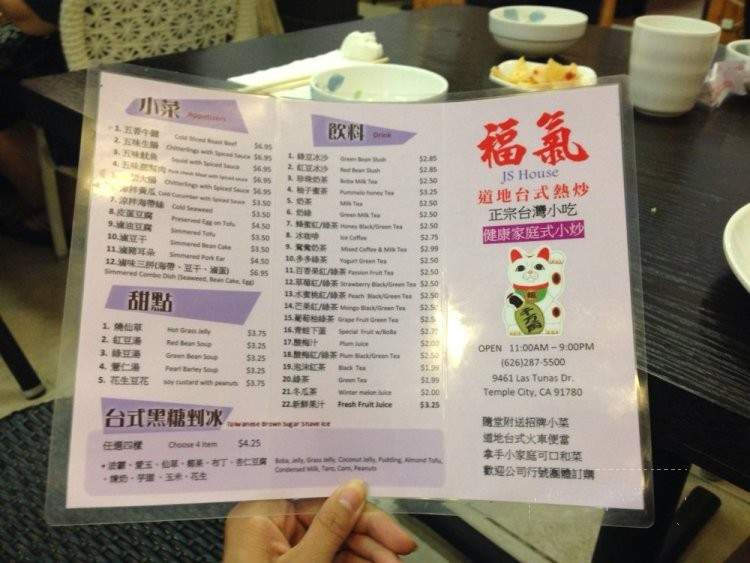 小菜 Appetizers
1. 五香牛腱 Cold Sliced Roast Beef $6.95
2. 五味生腸 Chitterlings with Spiced Sauce $6.95
3. 五味魷魚 Squid with Spiced Sauce $5.95
4. 五味 Pork cheek Meat with Spiced sauce $5.95
大腸 Chitterlings with Spiced Sauce $6.95
涼拌黃瓜 Cold Cucumber with Spiced Sauce $3.50
7. 涼拌海帶絲 Cold Seaweed $3.50
8. 皮蛋豆腐 Preserved Egg on Tofu $4.50
9. 滷油豆腐 Simmered Tofu $3.50
10. 滷豆干 Simmered Bean Cake $3.50
11. 滷豬耳朵 Simmered Pork Ear $4.50
12. 滷味三拼(海帶、豆干、滷蛋) $6.95
Simmered Combo Dish (Seaweed, Bean Cake, Egg)
甜點
1. 燒仙草 Hot Grass Jelly $3.75
2. 紅豆湯 Red Bean Soup $3.25
3. 綠豆湯 Green Bean Soup $3.25
4. 薏仁湯 Pearl Barley Soup $3.25
5. 花生豆花 soy custard with peanuts $3.75
台式黑糖剉冰 Taiwanese Brown Sugar Shave Ice
任選四樣 Choose 4 Item $4.25
• 波霸、愛玉、仙草、椰果、布丁、杏仁豆腐
、煉奶、芋圓、玉米、花生
Boba, Jelly, Grass Jelly, Coconut Jelly, Pudding, Almond Tofu,
Condensed Milk, Taro, Corn, Peanuts
飲料 Drink
1. 綠豆冰沙 Green Bean Slush $2.85
2. 紅豆冰沙 Red Bean Slush $2.85
3. 珍珠奶茶 Boba Milk Tea $2.50
4. 柚子蜜茶 Pummelo honey Tea $2.50
5. 奶茶 Milk Tea $2.50
6. 奶綠 Green Milk Tea $2.50
7. 蜂蜜紅/綠茶 Honey Black/Green Tea $2.50
8. 冰咖啡 Ice Coffee $2.75
9. 鴛鴦奶茶 Mixed Coffee & Milk Tea $2.99
10. 多多綠茶 Yogurt Green Tea $2.50
11. 百香果紅/綠茶 Passion Fruit Tea $2.50
12. 草莓紅/綠茶 Strawberry Black/Green Tea $2.50
13. 水蜜桃紅/綠茶 Peach Black/Green Tea $2.50
14. 芒果紅/綠茶 Mango Black/Green Tea $2.50
15. 葡萄柚綠茶 Grape Fruit Green Tea $2.50
16. 青蛙下蛋 Special Fruit w/Boba $2.75
17. 酸梅汁 Plum Juice $2.00
18. 酸梅紅/綠茶 Plum Black/Green Tea $2.50
19. 泡沫紅茶 Black Tea $1.99
20. 綠茶 Green Tea $1.99
21. 冬瓜茶 Winter melon Juice $2.00
22. 新鮮果汁 Fresh Fruit Juice $3.25
福氣
JS House
道地台式熱炒
正宗台灣小吃
健康家庭式小炒
千万両
OPEN 11:00AM – 9:00PM
(626)287-5500
9461 Las Tunas Dr.
Temple City, CA 91780
隨堂附送招牌小菜
道地台式火車便當
拿手小家庭可口和菜
歡迎公司行號團體訂購